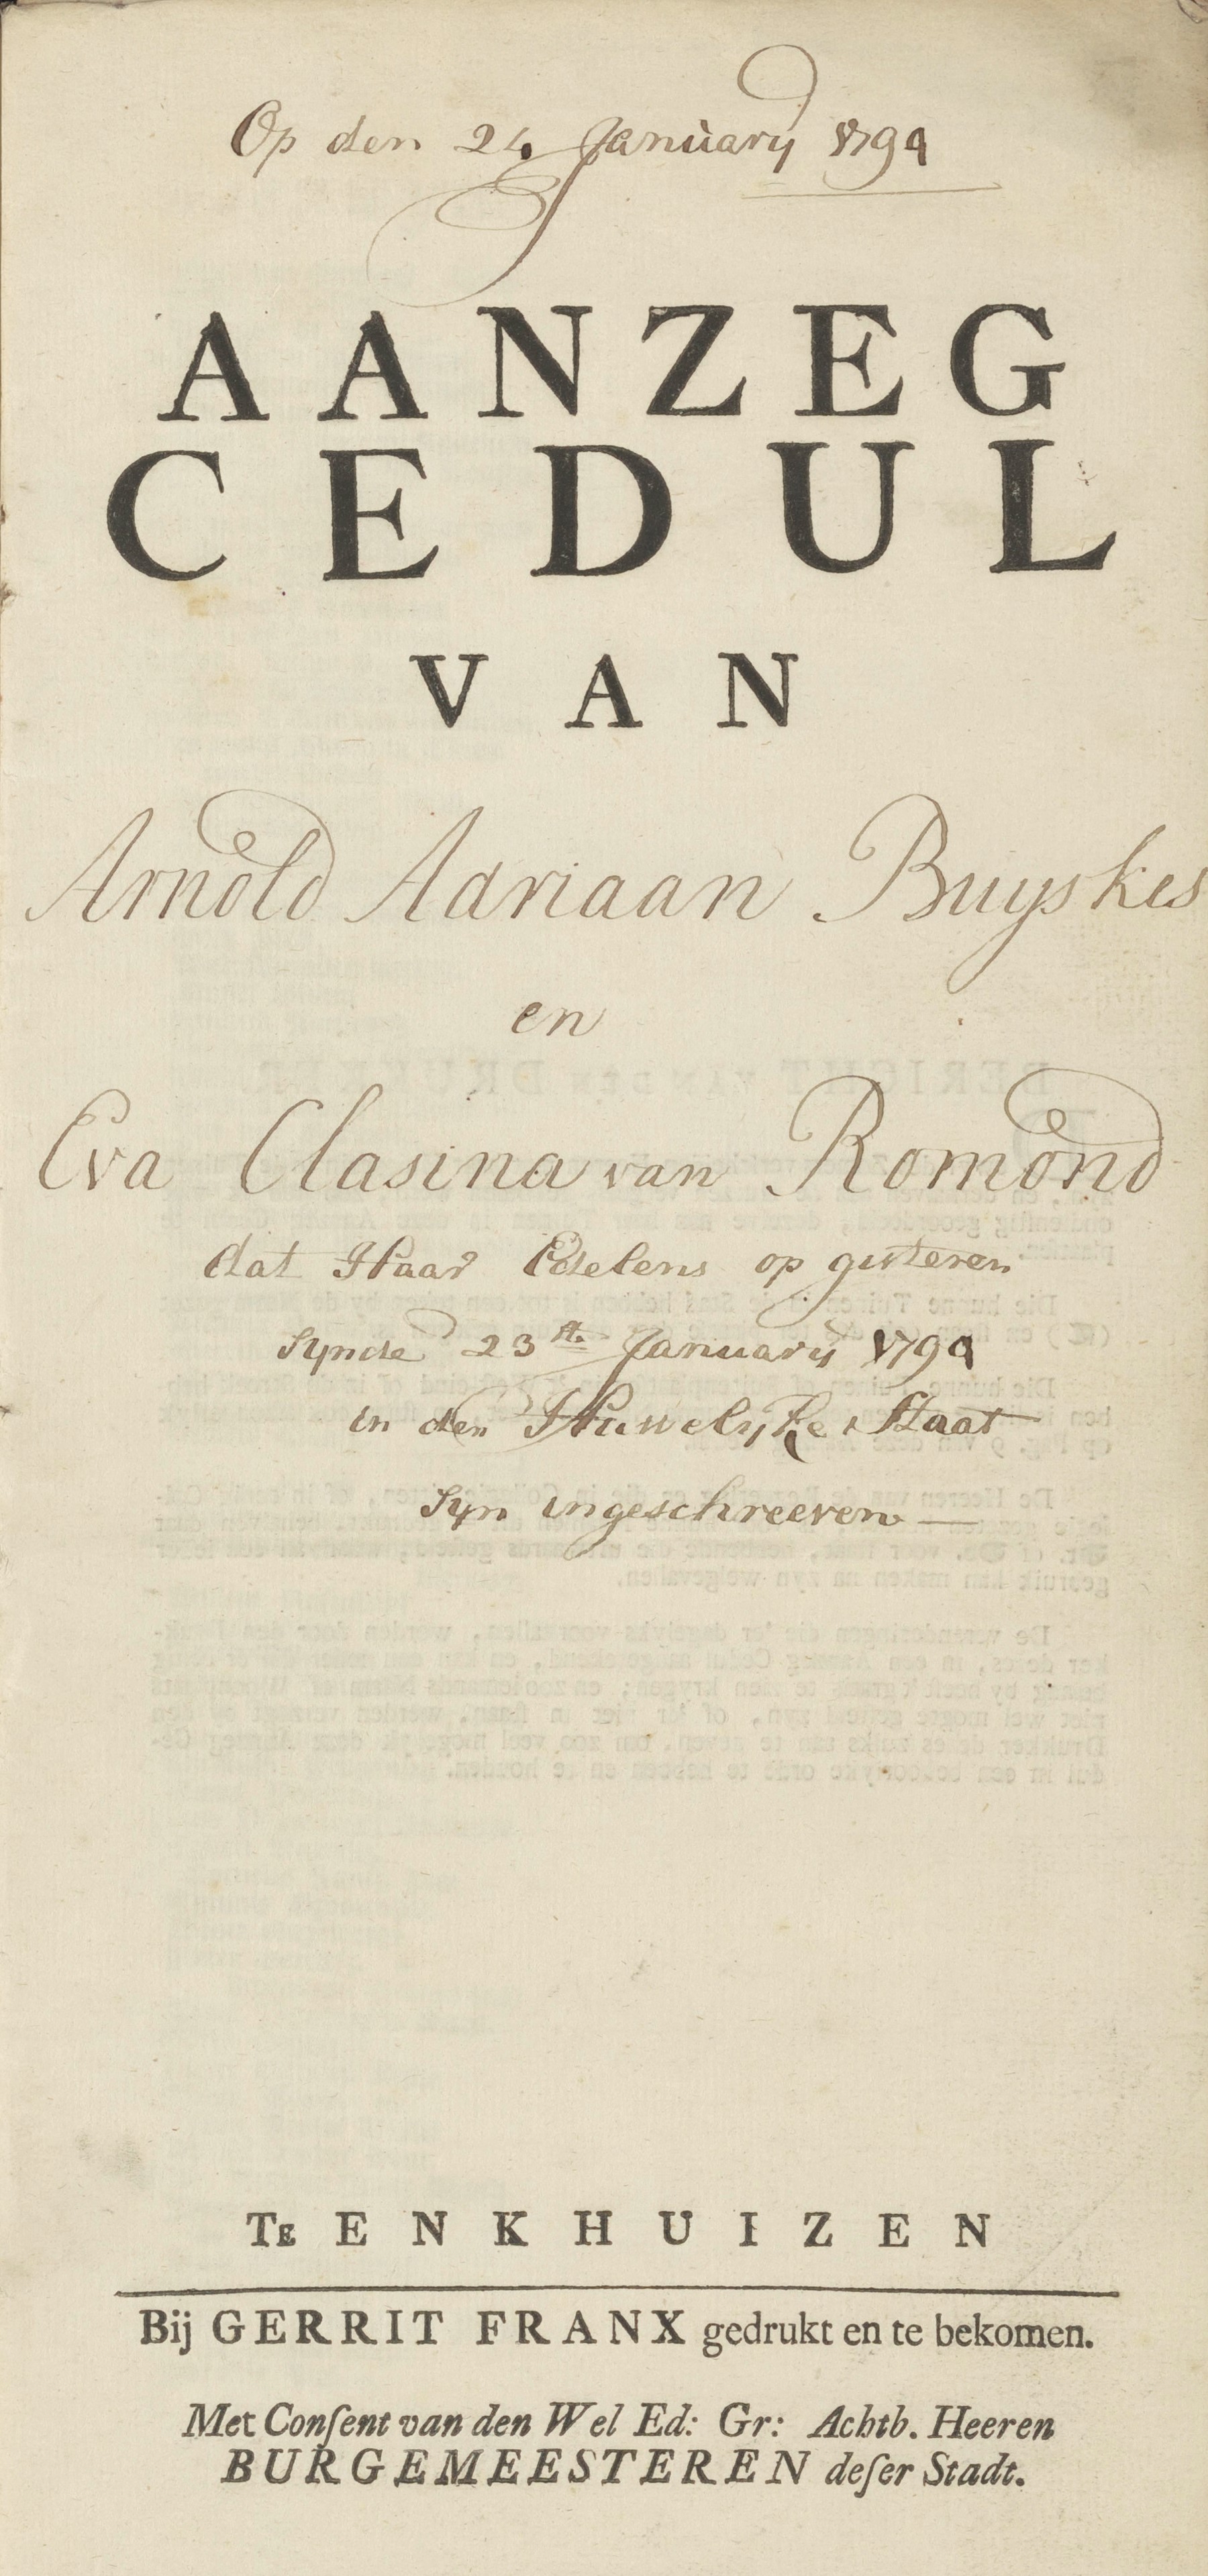 Op den 24 January 1794
AANZEG
CEDUL
VAN
Arnold Adriaan Buyskes
en
Eva Clasina van Romond
dat Haar Edelens op gisteren
Synde 23ste January 1794
in den Huwelyke Staat
Syn ingeschreeven —
TE ENKHUIZEN
Bij GERRIT FRANX gedrukt en te bekomen.
Met Conſent van den Wel Ed: Gr: Achtb. Heeren
BURGEMEESTEREN deſer Stadt.